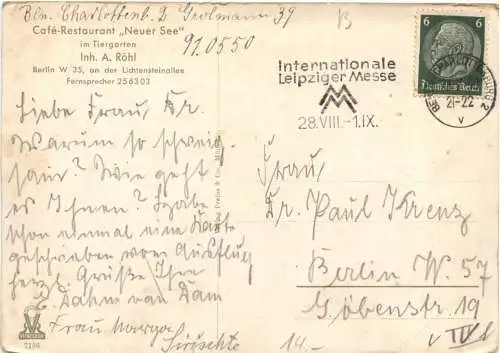 Bln. Charlottenb. 2 Grolmann 39
91.05.50
Café-Restaurant „Neuer See"
im Tiergarten
Inh. A. Röhl
Berlin W 35, an der Lichtensteinallee
Fernsprecher 25 63 03
Internationale
Leipziger Messe
28.VIII.-1.IX.
6 6
Deutsches Reich
21-22
V
Liebe Frau Kr.
Warum so schweig-
sam? Wie geht
es Ihnen? Habe
schon einmal eine Karte
geschrieben vom Ausflug
herzl. Grüße Ihre
Frau
Frau,
Paul Krenz
Berlin W. 57
Göbenstr. 19
14.-